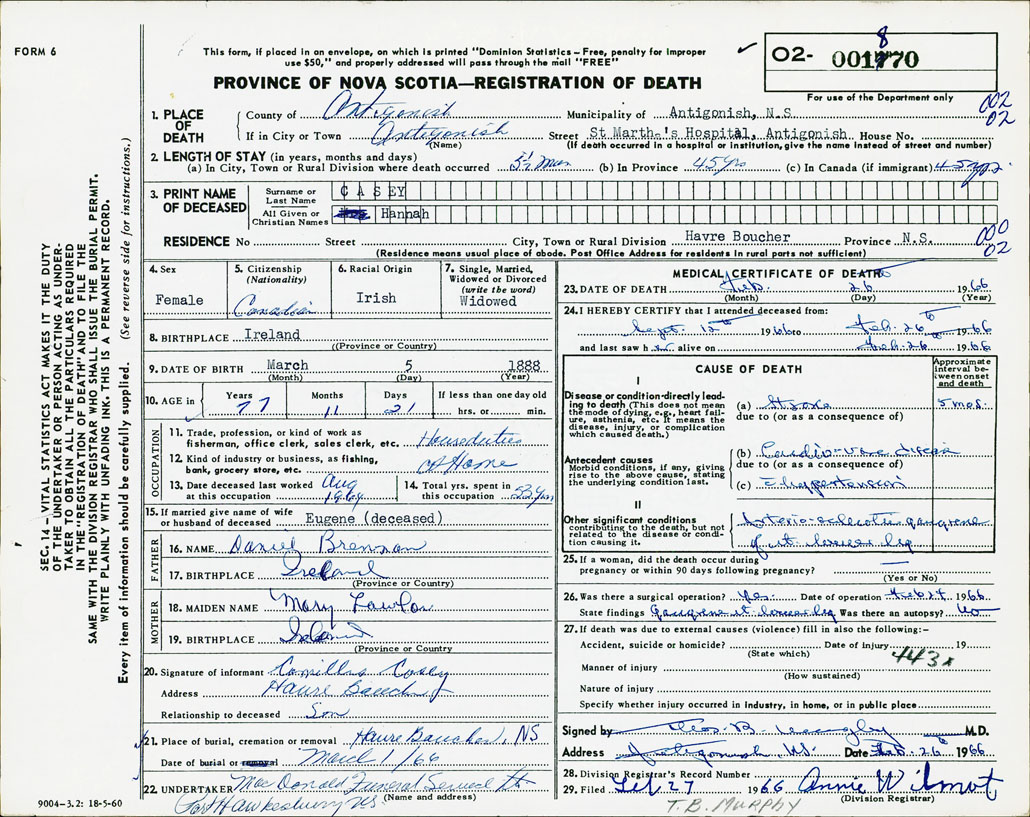 FORM 6
This form, if placed in an envelope, on which is printed "Dominion Statistics – Free, penalty for improper
use $50," and properly addressed will pass through the mail "FREE"
PROVINCE OF NOVA SCOTIA—REGISTRATION OF DEATH
✓ 02- 001770 8
For use of the Department only
002
02
1. PLACE OF DEATH
County of Antigonish Municipality of Antigonish, N.S
If in City or Town Antigonish Street St Marth-'s Hospital, Antigonish House No.
(Name) (If death occurred in a hospital or institution, give the name instead of street and number)
2. LENGTH OF STAY (in years, months and days)
(a) In City, Town or Rural Division where death occurred 5½ mos (b) In Province 45 yrs (c) In Canada (if immigrant) 45 yrs.
3. PRINT NAME OF DECEASED
Surname or Last Name CASEY
All Given or Christian Names Hannah
000
02
RESIDENCE No Street City, Town or Rural Division Havre Boucher Province N.S.
(Residence means usual place of abode. Post Office Address for residents in rural parts not sufficient)
4. Sex Female
5. Citizenship (Nationality) Canadian
6. Racial Origin Irish
7. Single, Married, Widowed or Divorced (write the word) Widowed
8. BIRTHPLACE Ireland
((Province or Country)
9. DATE OF BIRTH March 5 1888
(Month) (Day) (Year)
10. AGE in Years 77 Months 11 Days 21 If less than one day old hrs. or min.
OCCUPATION
11. Trade, profession, or kind of work as fisherman, office clerk, sales clerk, etc. Houseduties
12. Kind of industry or business, as fishing, bank, grocery store, etc. at Home
13. Date deceased last worked at this occupation Aug 1964
14. Total yrs. spent in this occupation 53 yrs
15. If married give name of wife or husband of deceased Eugene (deceased)
FATHER
16. NAME Daniel Brennan
17. BIRTHPLACE Ireland
(Province or Country)
MOTHER
18. MAIDEN NAME Mary Lawlor
19. BIRTHPLACE Ireland
(Province or Country)
20. Signature of informant Camillus Casey
Address Havre Boucher
Relationship to deceased Son
21. Place of burial, cremation or removal Havre Boucher, NS
Date of burial or removal March 1/66
22. UNDERTAKER MacDonald Funeral Service
(Name and address)
Port Hawkesbury NS.
MEDICAL CERTIFICATE OF DEATH
23. DATE OF DEATH Feb. 26 1966
(Month) (Day) (Year)
24. I HEREBY CERTIFY that I attended deceased from:
Sept. 12th 1966 to Feb. 26th 1966
and last saw her alive on Feb. 26 1966
CAUSE OF DEATH
Approximate interval between onset and death
I
Disease or condition directly leading to death (This does not mean the mode of dying, e.g., heart failure, asthenia, etc. It means the disease, injury, or complication which caused death.)
(a) Stroke 5 mos.
due to (or as a consequence of)
Antecedent causes
Morbid conditions, if any, giving rise to the above cause, stating the underlying condition last.
(b) Cardio-vasc disease
due to (or as a consequence of)
(c) Hypertension
II
Other significant conditions contributing to the death, but not related to the disease or condition causing it.
Arterio-sclerotic gangrene
of rt lower leg
25. If a woman, did the death occur during pregnancy or within 90 days following pregnancy? —
(Yes or No)
26. Was there a surgical operation? Yes. Date of operation Feb 24 1966
State findings Gangrene rt lower leg Was there an autopsy? No
27. If death was due to external causes (violence) fill in also the following:–
Accident, suicide or homicide? Date of injury 19
(State which) 443x
Manner of injury
(How sustained)
Nature of injury
Specify whether injury occurred in industry, in home, or in public place
Signed by M.D.
Address Antigonish NS. Date Feb. 26th 1966
28. Division Registrar's Record Number
29. Filed Feb. 27 1966 Annie Wilmot
(Division Registrar)
T.B. MURPHY
SEC. 14 – VITAL STATISTICS ACT MAKES IT THE DUTY
OF THE UNDERTAKER OR PERSON ACTING AS UNDER-
TAKER TO OBTAIN ALL THE PARTICULARS REQUIRED
IN THE "REGISTRATION OF DEATH" AND TO FILE THE
SAME WITH THE DIVISION REGISTRAR WHO SHALL ISSUE THE BURIAL PERMIT.
WRITE PLAINLY WITH UNFADING INK. THIS IS A PERMANENT RECORD.
Every item of information should be carefully supplied. (See reverse side for instructions.)
9004–3.2: 18-5-60